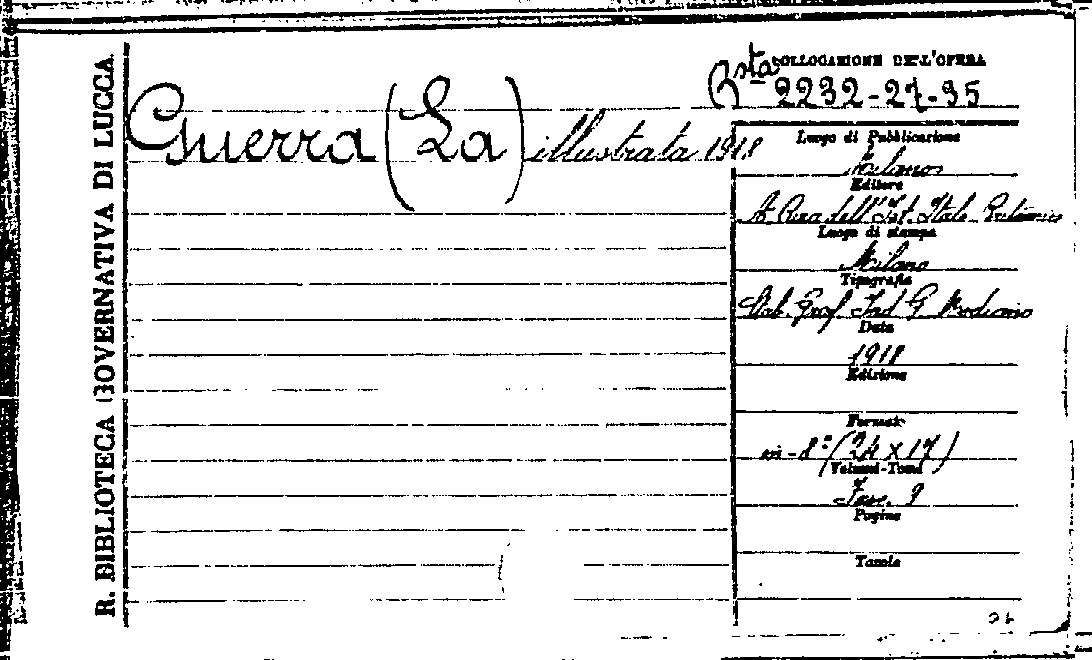 R. BIBLIOTECA GOVERNATIVA DI LUCCA
COLLOCAZIONE DELL'OPERA
Bsta 2232-27-35
Guerra (La) illustrata 1918
Luogo di Pubblicazione
Milano
Editore
A Cura dell'Ist. Italo-Britannico
Luogo di stampa
Milano
Tipografia
Stab. Graf. G. Modiano
Data
1918
Edizione
Formato
in-8º (24 x 17)
Volumi-Tomi
Fasc. 9
Pagine
Tavole